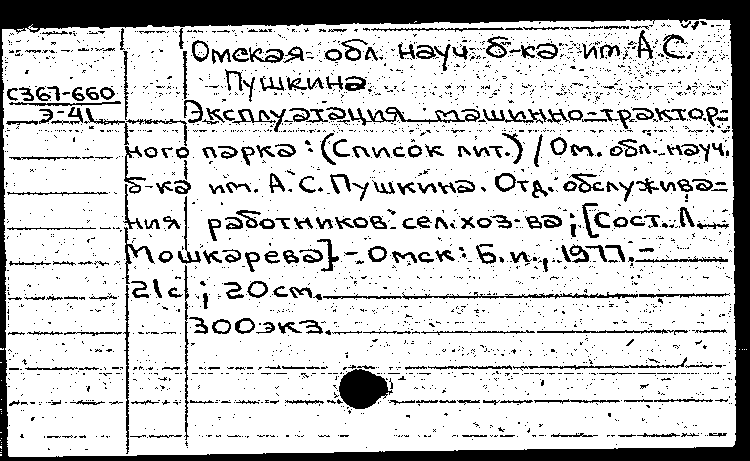 Омская обл. науч. б-ка им. А.С.
Пушкина
С367-660
Э-41
Эксплуатация машинно-трактор-
ного парка: (Список лит.) / Ом. обл. науч.
б-ка им. А.С. Пушкина. Отд. обслужива-
ния работников сел. хоз-ва; [Сост. Л.
Мошкарева]. - Омск: Б.и., 1977. -
21с.; 20см.
300экз.